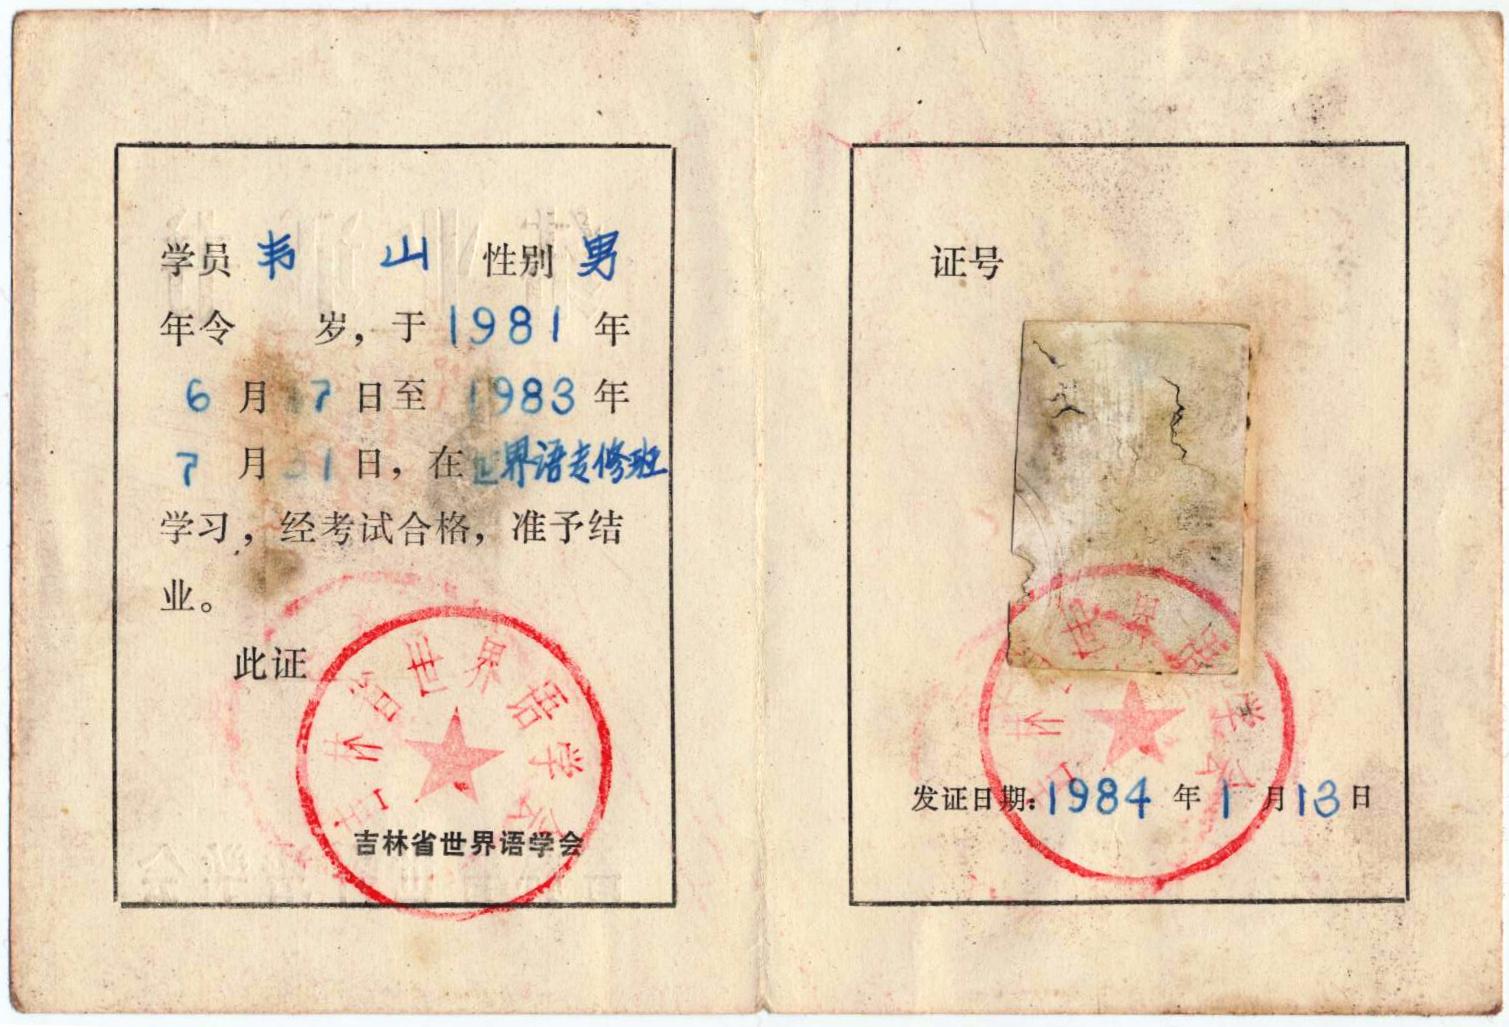 学员 韦 山 性别 男
年令 岁，于 1981 年
6 月 17 日至 1983 年
7 月 31 日，在 世界语专修班
学习，经考试合格，准予结
业。
此证
吉林省世界语学会
吉林省世界语学会
证号
林 世界语学会
发证日期：1984 年 1 月 13 日